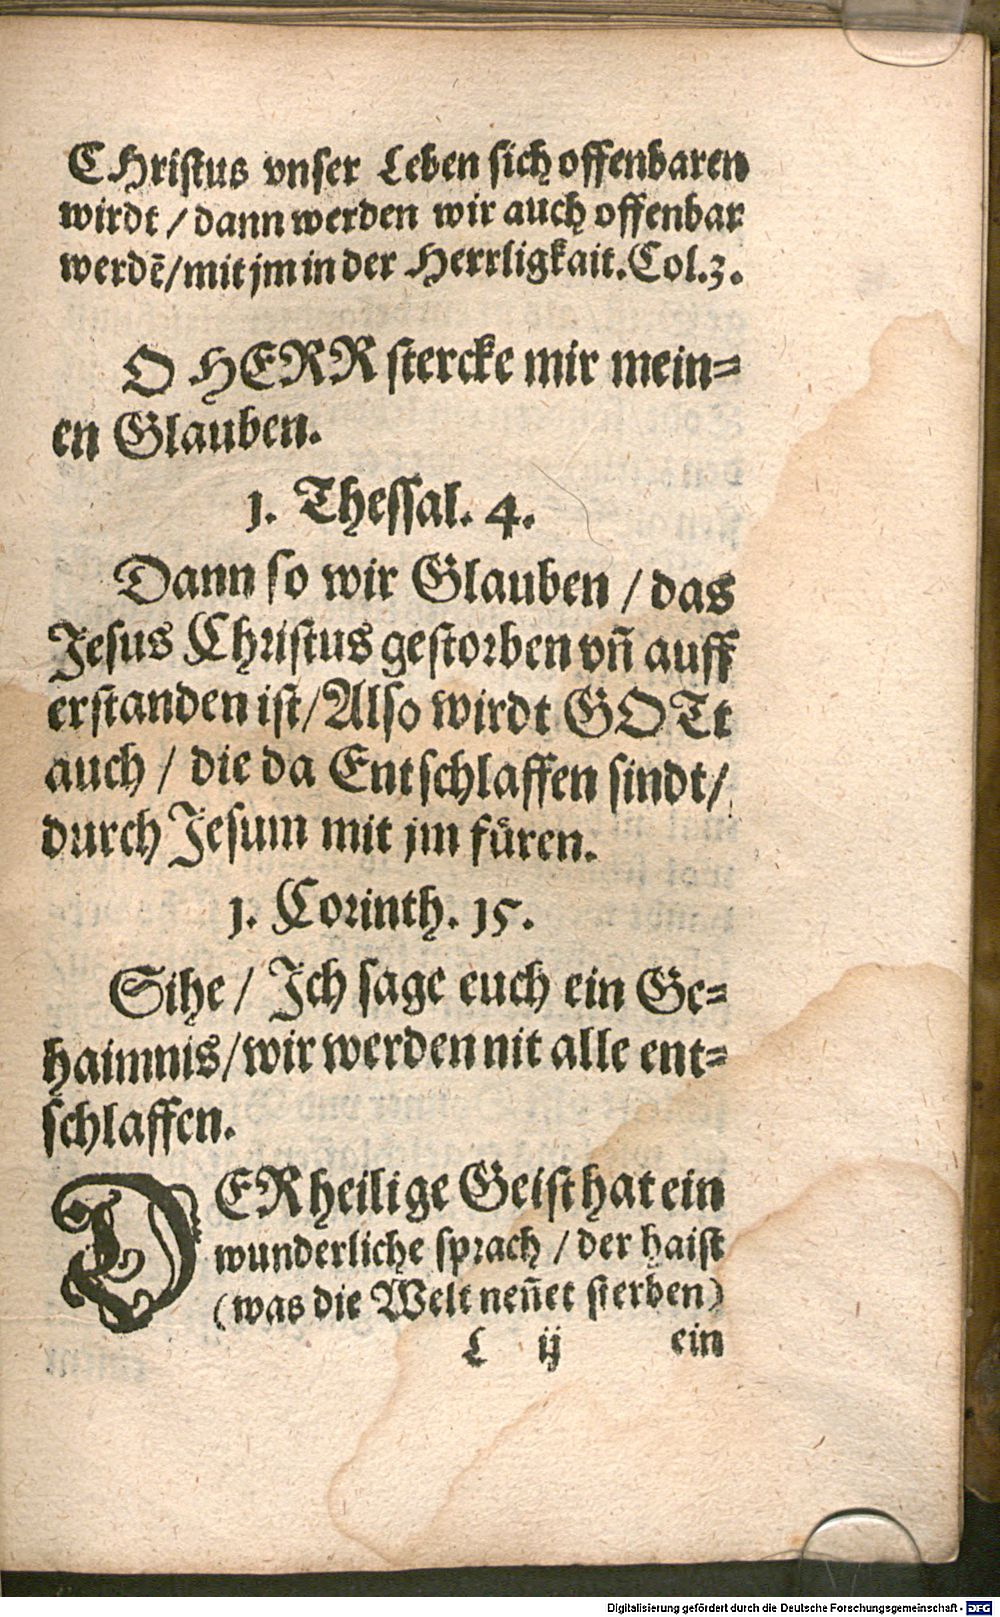 CHristus vnser Leben sich offenbaren
wirdt / dann werden wir auch offenbar
werdē/mit jm in der Herrligkait. Col. 3.
O HERR stercke mir mein=
en Glauben.
1. Thessal. 4.
Dann so wir Glauben / das
Jesus Christus gestorben vn̄ auff
erstanden ist/Also wirdt GOTt
auch / die da Entschlaffen sindt/
durch Jesum mit jm füren.
1. Corinth. 15.
Sihe / Ich sage euch ein Ge=
haimnis/wir werden nit alle ent=
schlaffen.
DER heilige Geist hat ein
wunderliche sprach / der haist
(was die Welt nen̄et sterben)
L ij ein
Digitalisierung gefördert durch die Deutsche Forschungsgemeinschaft - DFG